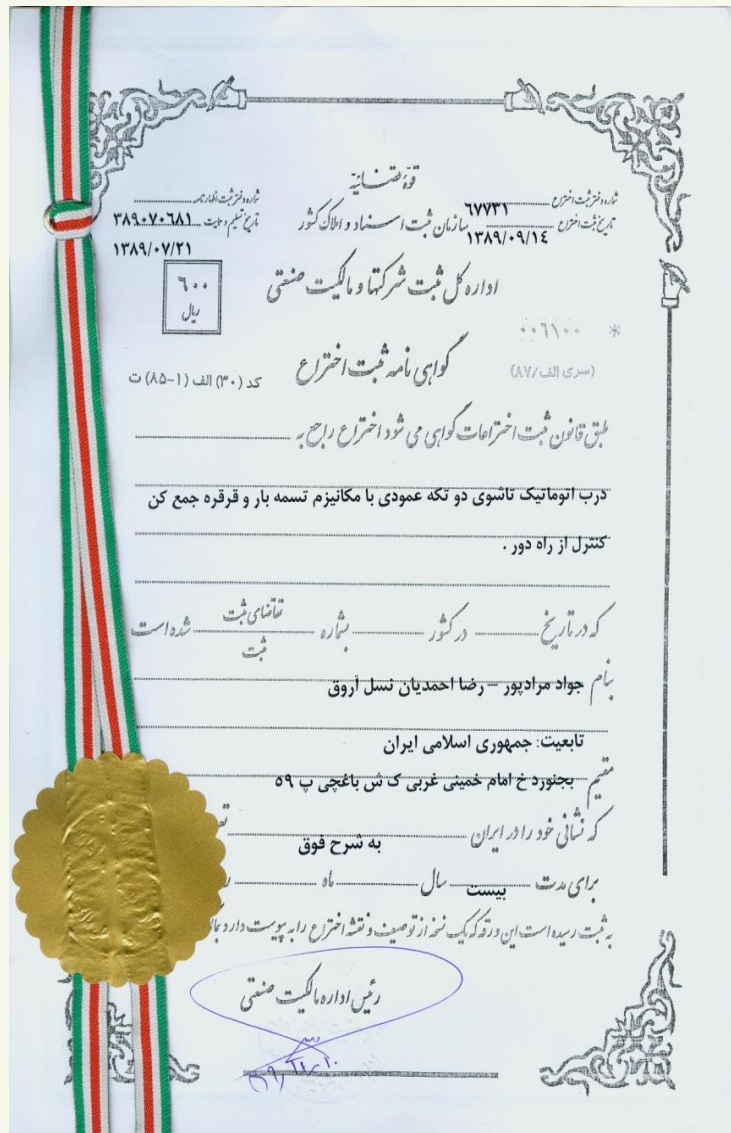 قوه قضائیه
شماره دفتر ثبت اختراع ٦٧٧٣١
شماره دفتر ثبت اظهارنامه
تاریخ ثبت اختراع ١٣٨٩/٠٩/١٤
سازمان ثبت اسناد و املاک کشور
تاریخ تسلیم و حمایت ٣٨٩٠٧٠٦٨١
١٣٨٩/٠٧/٢١
اداره کل ثبت شرکتها و مالکیت صنعتی
٦٠٠
ریال
* ٠٠٦١٠٠
(سری الف/٨٧)
گواهی نامه ثبت اختراع
کد (٣٠) الف (١-٨٥) ت
طبق قانون ثبت اختراعات گواهی می شود اختراع راجع به
درب اتوماتیک تاشوی دو تکه عمودی با مکانیزم تسمه بار و قرقره جمع کن
کنترل از راه دور .
که در تاریخ در کشور بشماره تقاضای ثبت شده است
ثبت
بنام جواد مرادپور – رضا احمدیان نسل آروق
تابعیت: جمهوری اسلامی ایران
مقیم بجنورد خ امام خمینی غربی ک ش باغچی پ ٥٩
که نشانی خود را در ایران به شرح فوق
برای مدت بیست سال ماه
به ثبت رسیده است این ورقه که یک نسخه از توصیف و نقشه اختراع را به پیوست دارد
رئیس اداره مالکیت صنعتی